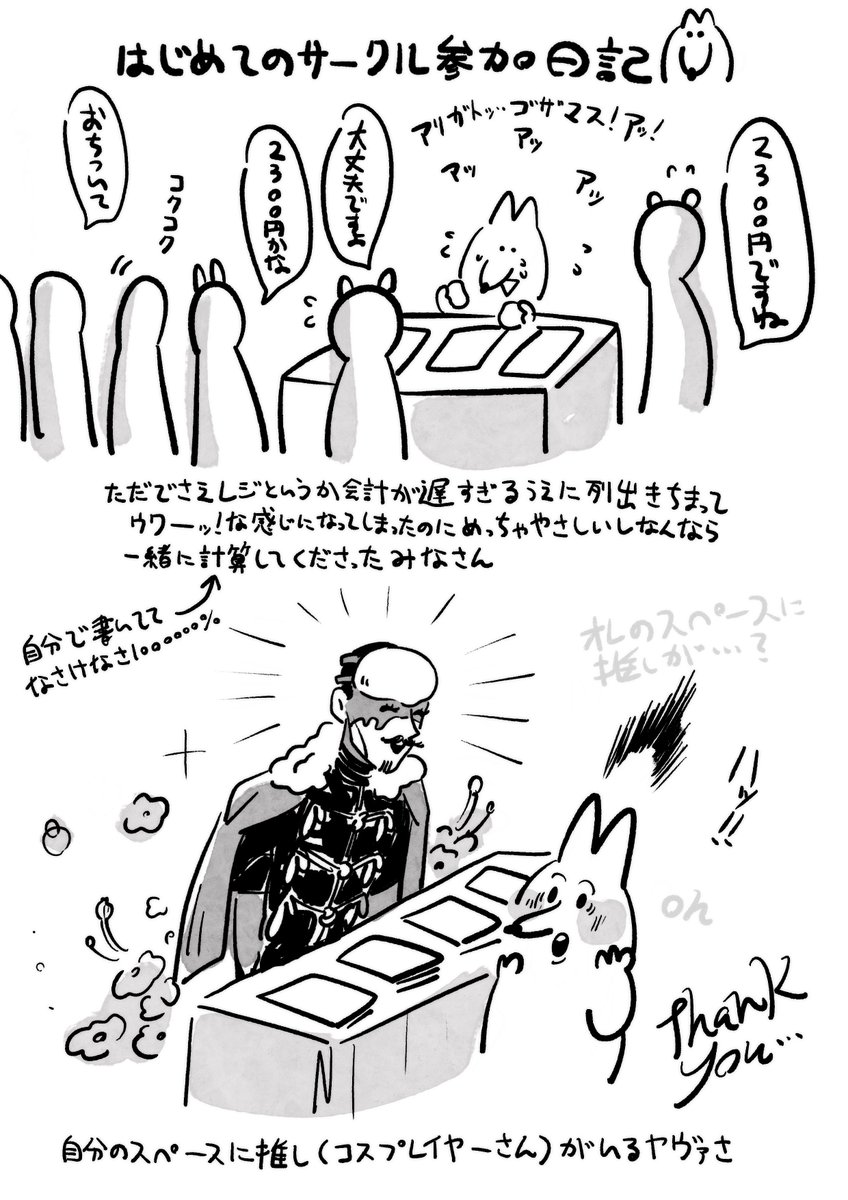 はじめてのサークル参加日記
2300円ですね
アリガトッ…ゴザマス！アッ！
アッ
アッ
アッ
大丈夫ですよ
2300円かな
コクコク
おちついて
ただでさえレジというか会計が遅すぎるうえに列出きちまって
ウワーッ！な感じになってしまったのにめっちゃやさしいしなんなら
一緒に計算してくださったみなさん
自分で書いてて
なさけなさ1000000%
オレのスペースに
推しが…？
ハッ!!
oh
Thank
you…
自分のスペースに推し(コスプレイヤーさん)がいるヤヴァさ